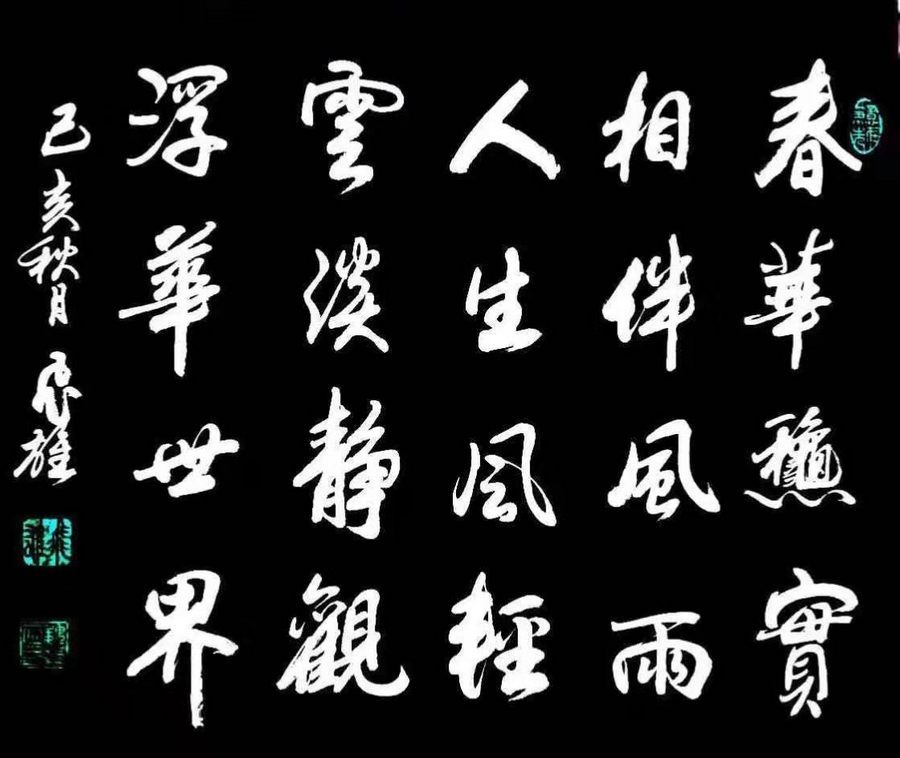 春華龝實
相伴風雨
人生風輕
雲淡静觀
浮華世界
己亥秋月 雄